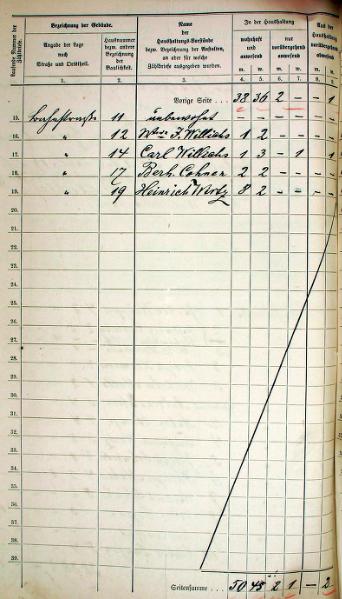 Laufende Nummer der Zählbriefe.
Bezeichnung der Gebäude.
Angabe der Lage nach Straße und Ortstheil.
Hausnummer bezw. andere Bezeichnung der Baulichkeit.
Name der Haushaltungs-Vorstände bezw. Bezeichnung der Anstalten, an oder für welche Zählbriefe ausgegeben wurden.
In der Haushaltung
wohnhaft und anwesend
nur vorübergehend anwesend
Aus der Haushaltung vorübergehend
1. 2. 3. 4. 5. 6. 7. 8. 9.
m. w. m. w. m. w.
Vorige Seite 38 36 2 – – 1
15. Bahnstrasse 11 unbewohnt
16. " 12 Wwe J. 1 2 – – –
17. " 14 Carl 1 3 – 1 1
18. " 17 Berh. Cohnen 2 2 – – –
19. " 19 Heinrich Wirtz 8 2 – – –
20.
21.
22.
23.
24.
25.
26.
27.
28.
29.
30.
31.
32.
33.
34.
35.
36.
37.
38.
39.
Seitensumme 50 45 2 1 – 2